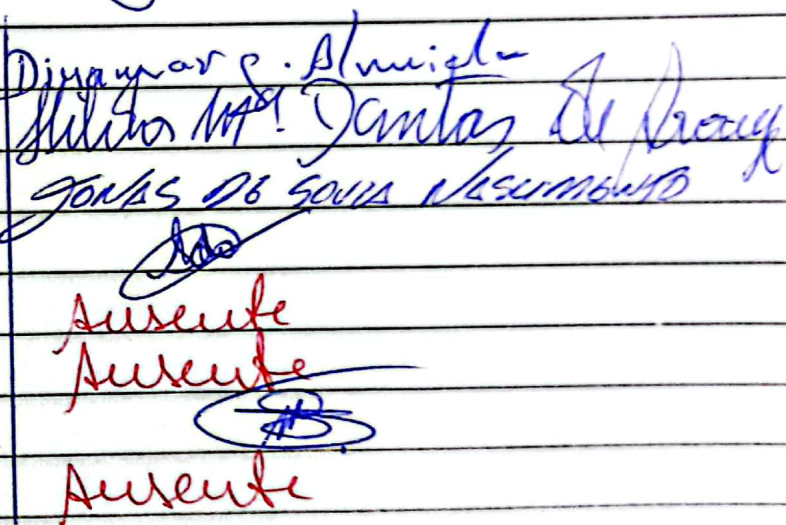 Dinamar S. Almeida
Hilda Mª. Dantas de Araujo
JONAS DE SOUZA NASCIMENTO
Ausente
Ausente
Ausente